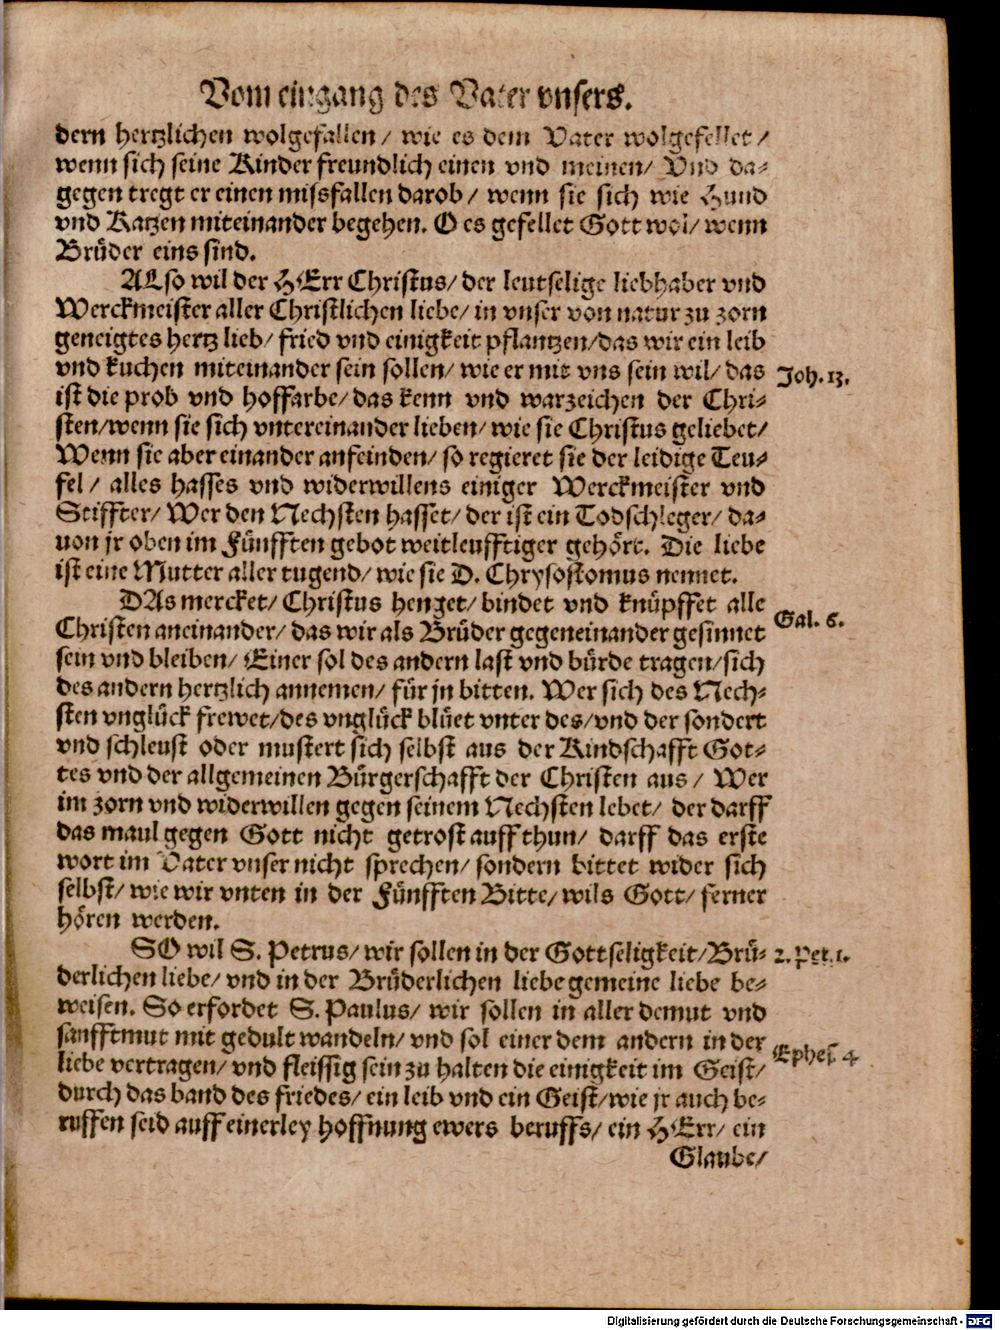 Vom eingang des Vater vnsers.
dern hertzlichen wolgefallen/ wie es dem Vater wolgefellet/
wenn sich seine Kinder freundlich einen vnd meinen/ Vnd da-
gegen tregt er einen missfallen darob/ wenn sie sich wie Hund
vnd Katzen miteinander begehen. O es gefellet Gott wol/ wenn
Brüder eins sind.
ALso wil der HErr Christus/ der leutselige liebhaber vnd
Werckmeister aller Christlichen liebe/ in vnser von natur zu zorn
geneigtes hertz lieb/ fried vnd einigkeit pflantzen/ das wir ein leib
vnd kuchen miteinander sein sollen/ wie er mit vns sein wil/ das
Joh. 13.
ist die prob vnd hoffarbe/ das kenn vnd warzeichen der Chri-
sten/ wenn sie sich vntereinander lieben/ wie sie Christus geliebet/
Wenn sie aber einander anfeinden/ so regieret sie der leidige Teu-
fel/ alles hasses vnd widerwillens einiger Werckmeister vnd
Stiffter/ Wer den Nechsten hasset/ der ist ein Todschleger/ da-
uon jr oben im Fünfften gebot weitleufftiger gehört. Die liebe
ist eine Mutter aller tugend/ wie sie D. Chrysostomus nennet.
DAs mercket/ Christus henget/ bindet vnd knüpffet alle
Gal. 6.
Christen aneinander/ das wir als Brüder gegeneinander gesinnet
sein vnd bleiben/ Einer sol des andern last vnd bürde tragen/ sich
des andern hertzlich annemen/ für jn bitten. Wer sich des Nech-
sten vnglück frewet/ des vnglück blüet vnter des/ vnd der sondert
vnd schleust oder mustert sich selbst aus der Kindschafft Got-
tes vnd der allgemeinen Bürgerschafft der Christen aus/ Wer
im zorn vnd widerwillen gegen seinem Nechsten lebet/ der darff
das maul gegen Gott nicht getrost auff thun/ darff das erste
wort im Vater vnser nicht sprechen/ sondern bittet wider sich
selbst/ wie wir vnten in der Fünfften Bitte/ wils Gott/ ferner
hören werden.
SO wil S. Petrus/ wir sollen in der Gottseligkeit/ Brü-
2. Pet. 1.
derlichen liebe/ vnd in der Brüderlichen liebe gemeine liebe be-
weisen. So erfordet S. Paulus/ wir sollen in aller demut vnd
sanfftmut mit gedult wandeln/ vnd sol einer dem andern in der
Ephes. 4
liebe vertragen/ vnd fleissig sein zu halten die einigkeit im Geist/
durch das band des friedes/ ein leib vnd ein Geist/ wie jr auch be-
ruffen seid auff einerley hoffnung ewers beruffs/ ein HErr/ ein
Glaube/
Digitalisierung gefördert durch die Deutsche Forschungsgemeinschaft - DFG